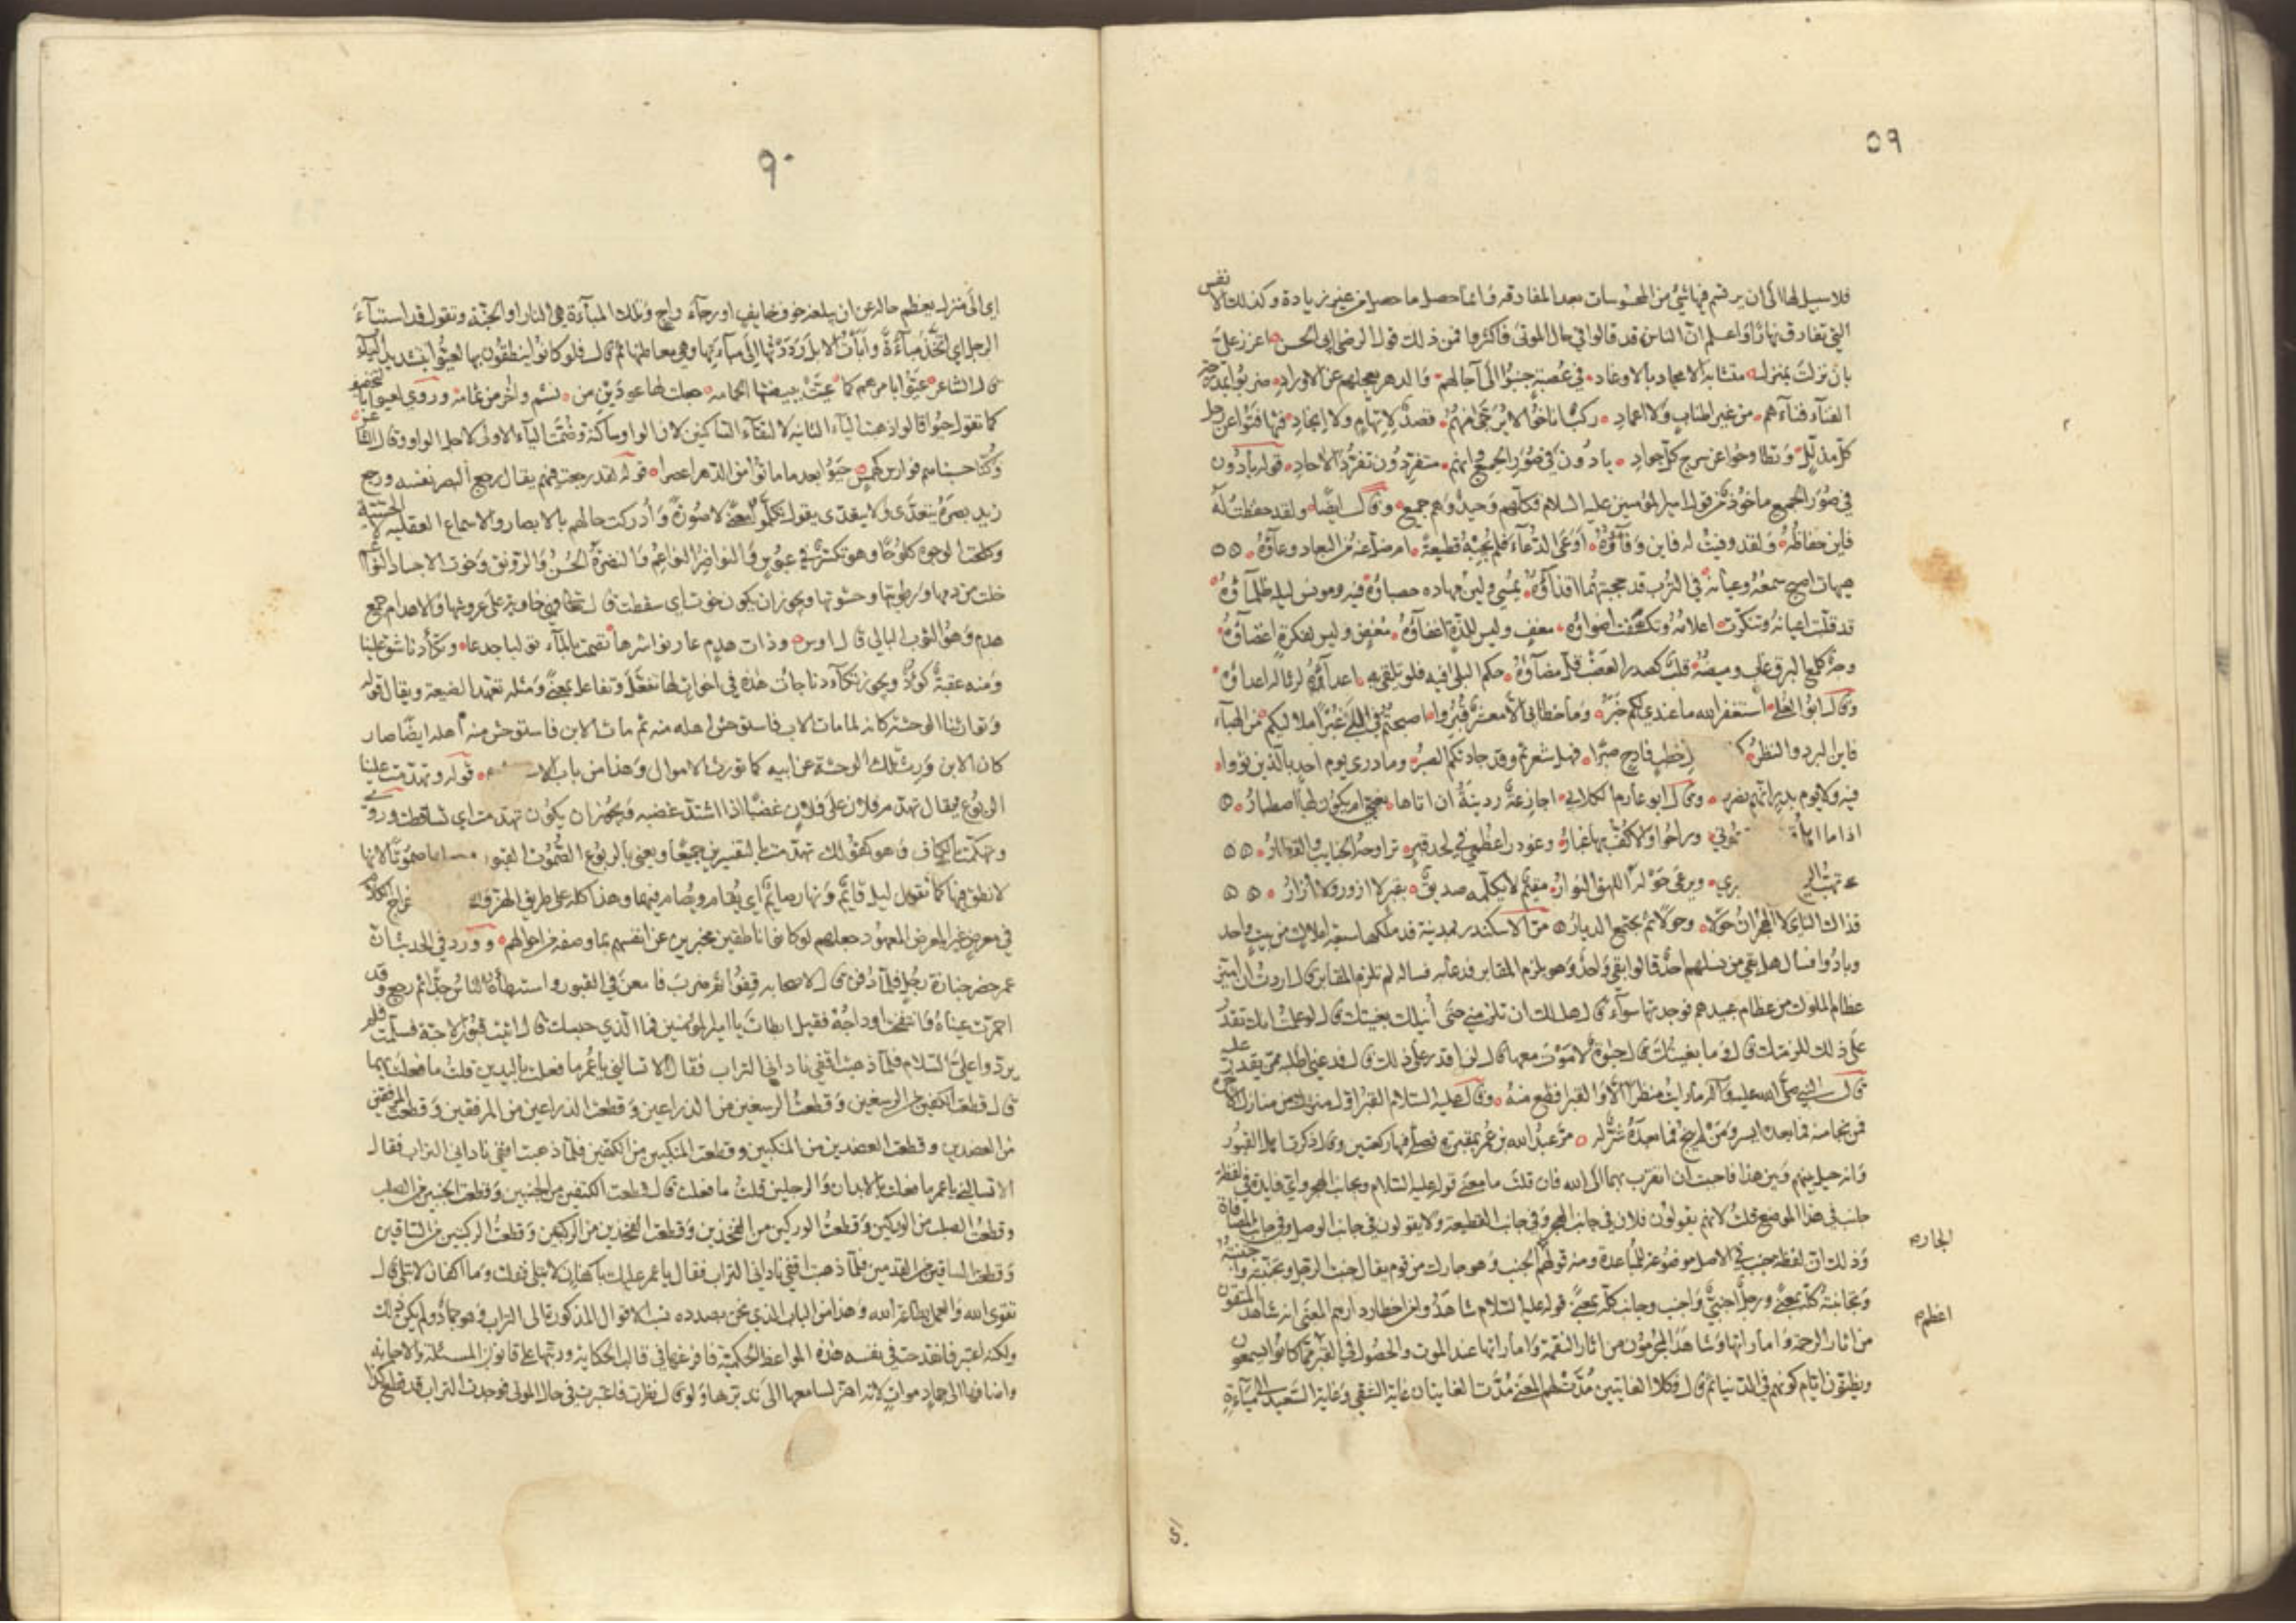 ٥٩
فلا سبيل لها الى ان يرتسم فيها شئ من المحسوسات بعد المفارقة فانما حصل ما حصل من غير زيادة وكذلك الانفس
التي تفارق نهارا واعلم ان الناس قد قالوا في حال الموتى فاكثروا فمن ذلك قول الرضي ابي الحسن اعزز علي
بان نزلت بمنزل متشابه الامجاد بالاوغاد في عصبة جنبوا الى آجالهم والدهر يعجلهم عن الاوراد ضربوا بمدرجة
الفناء قبابهم من غير اطناب ولا اعماد ركب اناخوا لا يرجى منهم قصد لاتهام ولا انجاد فتهافتوا عن رحل
كل مذلل وتطاوحوا عن سرج كل جواد بادون في صور الجميع وانهم متفردون تفرد الاحاد قوله بادون
في صور الجميع ماخوذ من قول امير المؤمنين عليه السلام فكلهم وحيد وهم جميع وقال ايضا ولقد حفظت له
فاين حفاظه ولقد وفيت له فاين وفاؤه اوعى الدعاء فلم يجبه قطيعة ام ضل عنه من البعاد دعاؤه
هيهات اصبح سمعه وعيانه في الترب قد حجبتهما اقذاؤه يمسي ولين مهاده حصباؤه فيه ومونس ليله ظلماؤه
قد قلبت اعيانه وتنكرت اعلامه وتكسفت اضواؤه مغف وليس للذة اغفاؤه مغض وليس لفكرة اغضاؤه
وجه كلمع البرق غاب وميضه قلب كصدر العضب فل مضاؤه حكم البلى فيه فلو تلقى به اعداؤه لرثى له اعداؤه
وقال ابو العلاء استغفر الله ما عندي لكم خبر وما خطابي الا معشرا قبروا اصبحتم في البلى غبرا ملابسكم من الهباء
فاين البرد والقطر خطب فادح صبرا فهل شعرتم وقد جادتكم الصبر وما درى يوم احد بالذين ثووا
فيه ولا يوم بدر انهم نصروا وقال ابو عارم الكلابي اجازعة ردينة ان اتاها نعيي ام يكون لها اصطبار
اذا ما اهل ‌ ‌وني وراحوا والاكف بها غبار وغودر اعظمي في لحد قبر تراوحه الجنايب والقطار
تهب الريح ‌ ‌بري ويرعى حوله اللهق النوار مقيم لا يكلمه صديق بقبر لا ازور ولا ازار
فذاك النأي لا الهجران حولا وحولا ثم يجتمع الديار مر الاسكندر بمدينة قد ملكها سبعة املاك من بيت واحد
وبادوا فسأل هل بقي من نسلهم احد قالوا بقي واحد وهو يلزم المقابر فدعا به فساله لم تلزم المقابر قال اردت ان اميز
عظام الملوك من عظام عبيدهم فوجدتها سواء قال هل لك ان تلزمني حتى أنيلك بغيتك قال لو علمت انك تقدر
على ذلك للزمتك قال وما بغيتك قال حيوة لا موت معها قال لن اقدر على ذلك قال فدعني اطلبه ممن يقدر عليه
قال النبي صلى الله عليه وآله ما رايت منظرا الا والقبر افظع منه وقال عليه السلام القبر اول منزل من منازل الاخرة
فمن نجا منه فما بعده ايسر ومن لم ينج فما بعده شر له مر عبد الله بن عمر بمقبرة فصلى فيها ركعتين وقال ذكرت اهل القبور
وانه حيل بينهم وبين هذا فاحببت ان اتقرب بهما الى الله فان قلت ما معنى قوله عليه السلام وبجانب الهجر واي فايدة في لفظة
جانب في هذا الموضع قلت لانهم يقولون فلان في جانب الهجر وفي جانب القطيعة ولا يقولون في جانب الوصل وفي جانب المصافاة
وذلك ان لفظة جنب في الاصل موضوعة للمباعدة ومنه قولهم الجنب وهو جارك من قوم يقال جنبت الرجل وتجنبته واجنبته
وتجانبته كله بمعنى ورجل اجنبي واجنب وجانب كله بمعنى قوله عليه السلام شاهدوا من اخطار دارهم المعنى انه شاهد المتقون
من اثار الرحمة واماراتها وشاهد المجرمون من اثار النقمة واماراتها عند الموت والحصول في القبر مما كانوا يسمعون
ويظنون ايام كونهم في الدنيا ثم قال فكلا الغايتين مدت لهم المعنى مدت الغايتان غاية الشقي وغاية السعيد الى مباءة
الجار
اعظم
٩٠
اي الى منزل يعظم حاله عن ان يبلغه خوف خايف او رجاء راج وتلك المباءة هي النار او الجنة وتقول قد استباء
الرجل اي اتخذ مباءة وأبأت الابل رددتها الى مباءتها وهي معاطنها ثم قال فلو كانوا ينطقون بها لعيوا بتشديد الياء
قال الشاعر عيوا بامرهم كما عيت ببيضتها الحمامة جعلت لها عودين من نشم واخر من ثمامه وروي لعيوا بالتخفيف
كما تقول حيوا قالوا ذهبت الياء الثانية لالتقاء الساكنين لان الواو ساكنة وضمت الياء الاولى لاجل الواو وقال الشاعر
وكنا حسبناهم فوارس كهمس حيوا بعد ما ماتوا من الدهر اعصرا قوله لقد رجعت فيهم يقال رجع البصر نفسه ورجع
زيد بصره يتعدى ولا يتعدى يقول تكلموا معنى لا صورة وأدركت حالهم بالابصار والاسماع العقلية لا الحسية
وكلحت الوجوه كلوحا وهو تكشر في عبوس والنواضر النواعم والنضرة الحسن والرونق وخوت الاجساد النواعم
خلت من دمها ورطوبتها وحشوتها ويجوز ان يكون خوت اي سقطت قال تعالى فهي خاوية على عروشها والاهدام جمع
هدم وهو الثوب البالي قال اوس وذات هدم عار نواشرها تصمت بالماء تولبا جدعا وتكأدنا شق علينا
ومنه عقبة كؤد ويجوز تكاءدنا جاءت هذه في اخوات لها تفعل وتفاعل بمعنى ومثله تعهد الضيعة ويقال قوله
وتوارثنا الوحشة كانه لما مات الاب فاستوحش اهله منه ثم مات الابن فاستوحش منه اهله ايضا صار
كان الابن ورث تلك الوحشة عن ابيه كما تورث الاموال وهذا من باب الا قوله وتهدمت علينا
الربوع يقال تهدم فلان على فلان غضبا اذا اشتد غضبه ويجوز ان يكون تهدمت اي تساقطت وروي
وتهكمت بالكاف وهو كقولك تهدمت بالتفسيرين جميعا ويعني بالربوع الصموت القبور صموتا لانها
لا نطق فيها كما تقول ليل قائم ونهار صايم اي يقام ويصام فيهما وهذا كله على طريق الهز خراج الكلام
في معرض غير المعرض المعهود جعلهم لو كانوا ناطقين مخبرين عن انفسهم بما وصفه من احوالهم وورد في الحديث ان
عمر حضر جنازة رجل فلما دفن قال لاصحابه قفوا ثم ضرب فامعن في القبور واستبطأه الناس جدا ثم رجع وقد
احمرت عيناه وانتفخت اوداجه فقيل ابطات يا امير المؤمنين فما الذي حبسك قال اتيت قبور الاحبة فسلمت فلم
يردوا علي السلام فلما ذهبت اقفي ناداني التراب فقال الا تسالني يا عمر ما فعلت باليدين قلت ما فعلت بهما
قال قطعت الكفين من الرسغين وقطعت الرسغين من الذراعين وقطعت الذراعين من المرفقين وقطعت المرفقين
من العضدين وقطعت العضدين من المنكبين وقطعت المنكبين من الكتفين فلما ذهبت اقفي ناداني التراب فقال
الا تسالني يا عمر ما فعلت بالابدان والرجلين قلت ما فعلت قال قطعت الكتفين من الجنبين وقطعت الجنبين من الصلب
وقطعت الصلب من الوركين وقطعت الوركين من الفخذين وقطعت الفخذين من الركبتين وقطعت الركبتين من الساقين
وقطعت الساقين من القدمين فلما ذهبت اقفي ناداني التراب فقال يا عمر عليك باكفان لا تبلى فقلت وما اكفان لا تبلى قال
تقوى الله والعمل بطاعة الله وهذا من الباب الذي نحن بصدده نسب الاقوال المذكورة الى التراب وهو جماد ولم يكن ذلك
ولكنه اعتبر فانقدحت في نفسه هذه المواعظ الحكمية فافرغها في قالب الحكاية ورتبها على قانون المسئلة والاجابة
واضافها الى جماد موات لانه اهز لسامعها الى تدبرها ولو قال نظرت فاعتبرت في حال الموتى فوجدت التراب قد قطع كذا